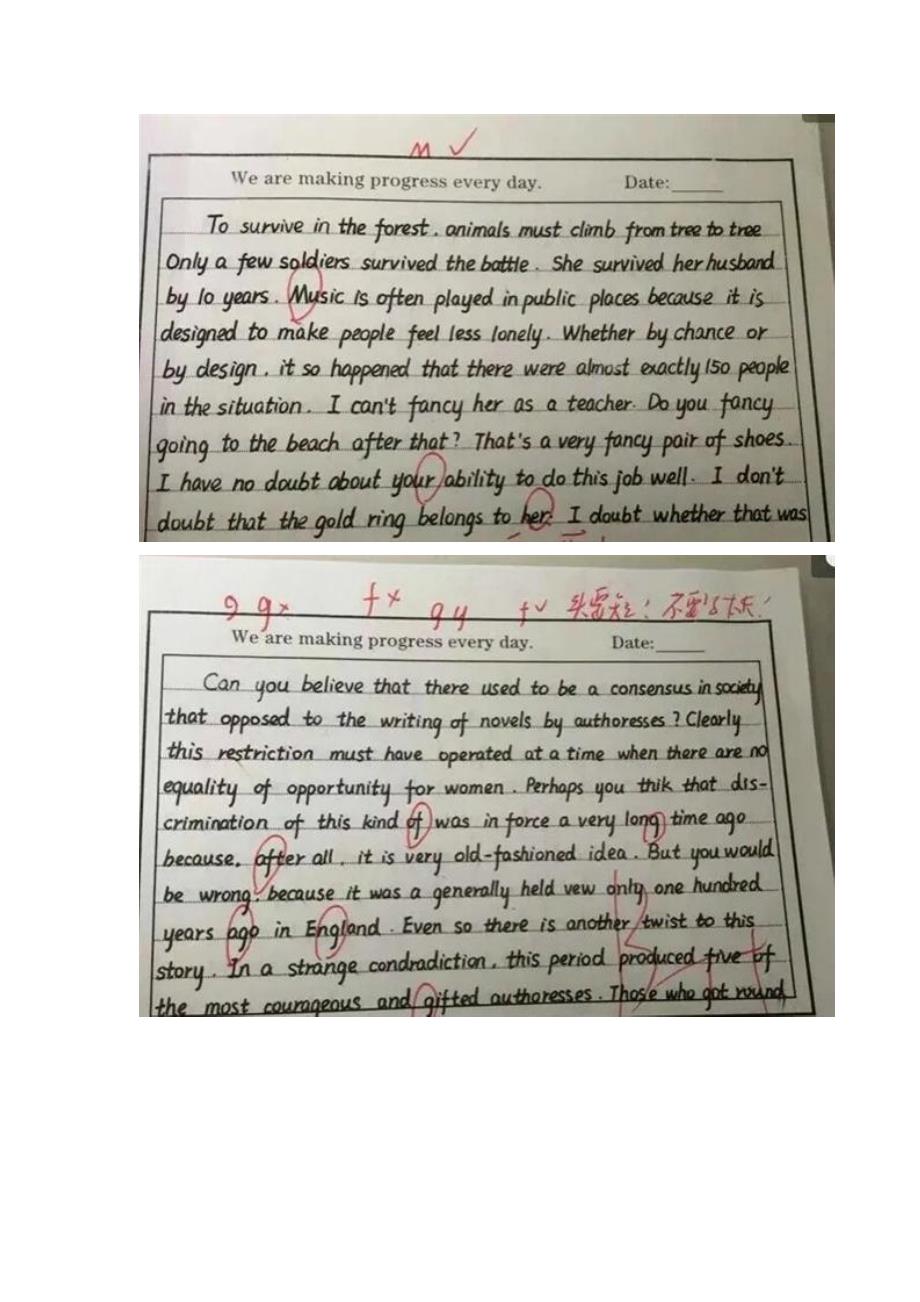 M ✓
We are making progress every day. Date:_____
To survive in the forest, animals must climb from tree to tree
Only a few soldiers survived the battle. She survived her husband
by 10 years. Music is often played in public places because it is
designed to make people feel less lonely. Whether by chance or
by design, it so happened that there were almost exactly 150 people
in the situation. I can't fancy her as a teacher. Do you fancy
going to the beach after that? That's a very fancy pair of shoes.
I have no doubt about your ability to do this job well. I don't
doubt that the gold ring belongs to her. I doubt whether that was
g g× f× g y f✓ 头要短! 不要
We are making progress every day. Date:_____
Can you believe that there used to be a consensus in society
that opposed to the writing of novels by authoresses? Clearly
this restriction must have operated at a time when there are no
equality of opportunity for women. Perhaps you thik that dis-
crimination of this kind of was in force a very long time ago
because, after all, it is very old-fashioned idea. But you would
be wrong, because it was a generally held vew only one hundred
years ago in England. Even so there is another twist to this
story. In a strange condradiction, this period produced five of
the most courageous and gifted authoresses. Those who got round